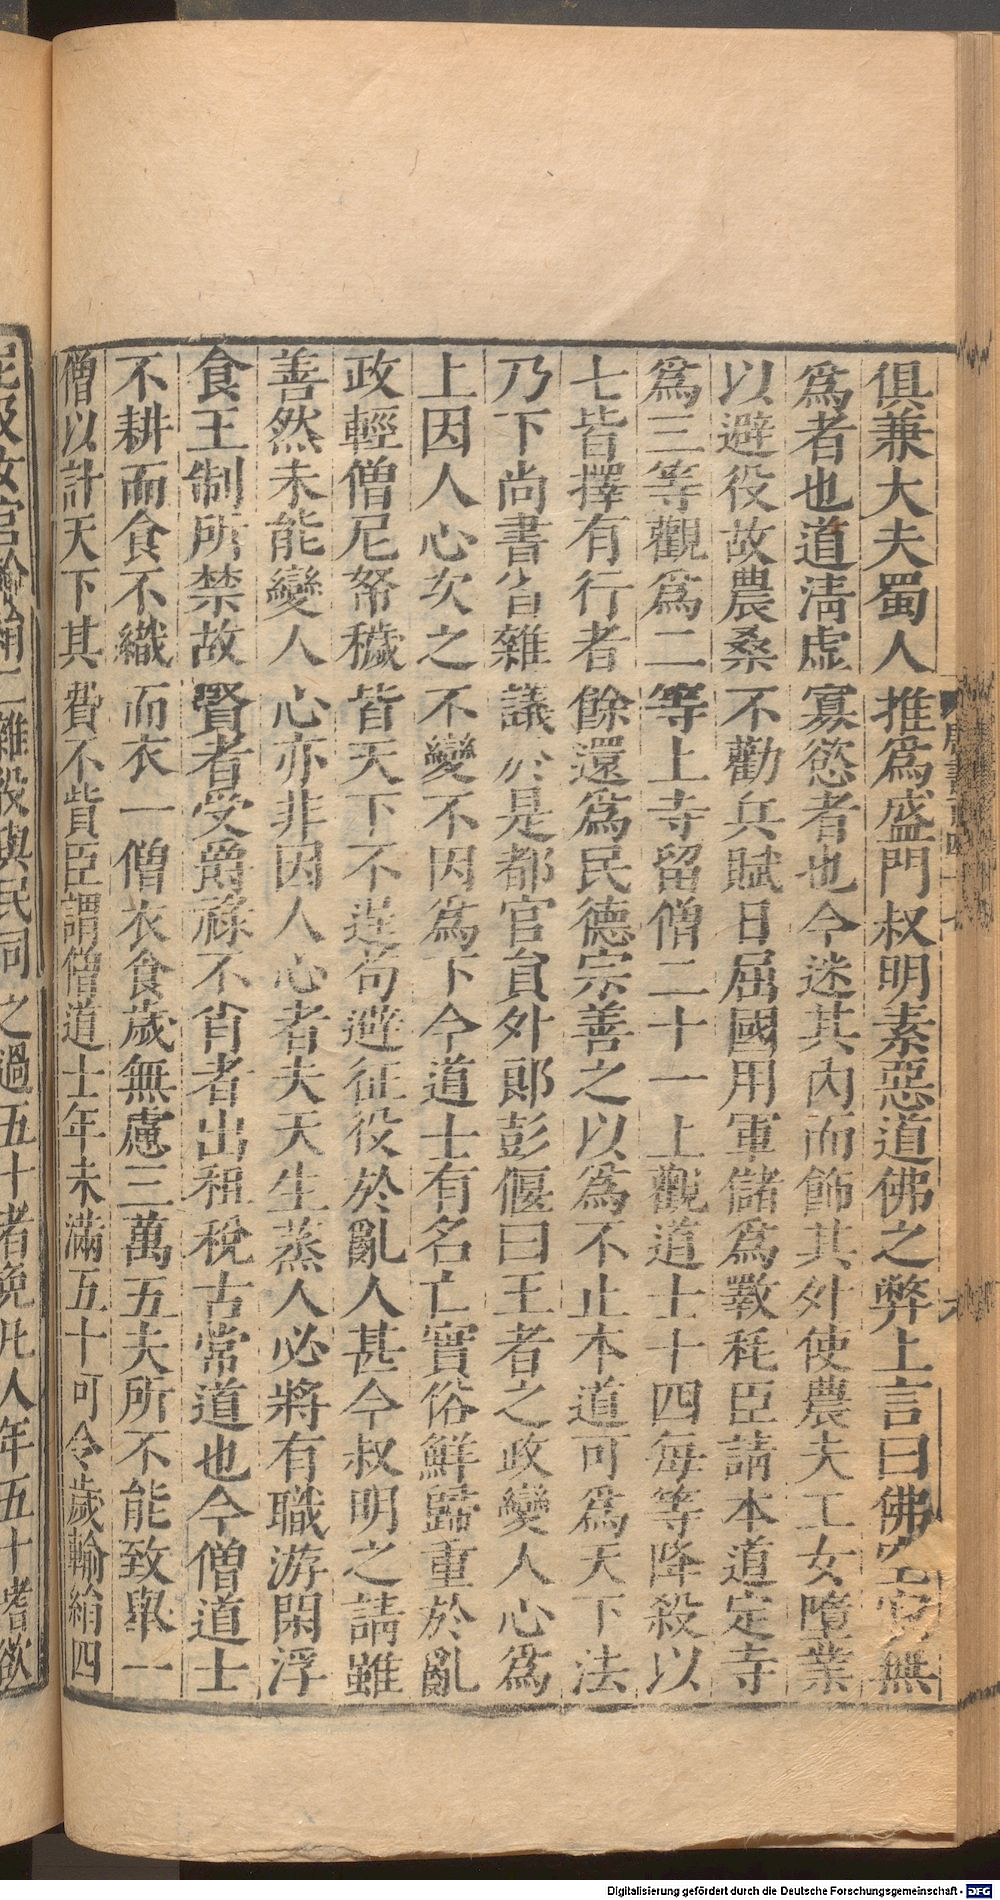 俱兼大夫蜀人推爲盛門叔明素惡道佛之弊上言曰佛空寂無
爲者也道淸虛寡慾者也今迷其內而飾其外使農夫工女墮業
以避役故農桑不勸兵賦日屈國用軍儲爲斁耗臣請本道定寺
爲三等觀爲二等上寺留僧二十一上觀道士十四每等降殺以
七皆擇有行者餘還爲民德宗善之以爲不止本道可爲天下法
乃下尚書省雜議於是都官員外郎彭偃曰王者之政變人心爲
上因人心次之不變不因爲下今道士有名亡實俗鮮歸重於亂
政輕僧尼帑穢皆天下不逞苟避征役於亂人甚今叔明之請雖
善然未能變人心亦非因人心者夫天生蒸人必將有職游閑浮
食王制所禁故賢者受爵祿不肖者出租稅古常道也今僧道士
不耕而食不織而衣一僧衣食歲無慮三萬五夫所不能致舉一
僧以計天下其費不貲臣謂僧道士年未滿五十可令歲輸絹四
尼及女官輸絹二雜役與民同之過五十者免凡人年五十嗜欲
Digitalisierung gefördert durch die Deutsche Forschungsgemeinschaft - DFG